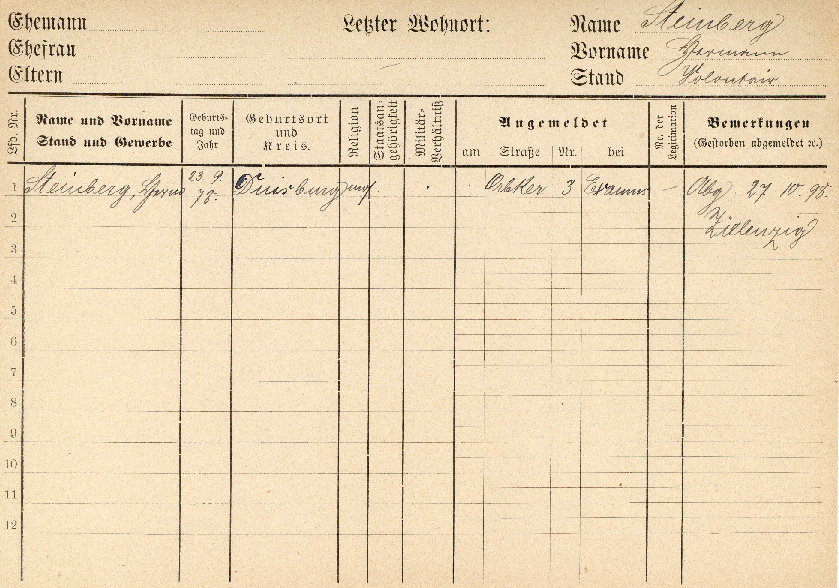 Ehemann
Ehefrau
Eltern
Letzter Wohnort:
Name Steinberg
Vorname Hermann
Stand Volontair
Lfd. Nr.
Name und Vorname
Stand und Gewerbe
Geburts-
tag und
Jahr
Geburtsort
und
Kreis.
Religion
Staatsan-
gehörigkeit
Militär-
Verhältniß
Angemeldet
am Straße Nr. bei
Nr. der
Legitimation
Bemerkungen
(Gestorben abgemeldet ec.)
1 Steinberg, Herm 23. 9. 78. Duisburg 3 Abg 27 IV 98.
2 Zielenzig
3
4
5
6
7
8
9
10
11
12